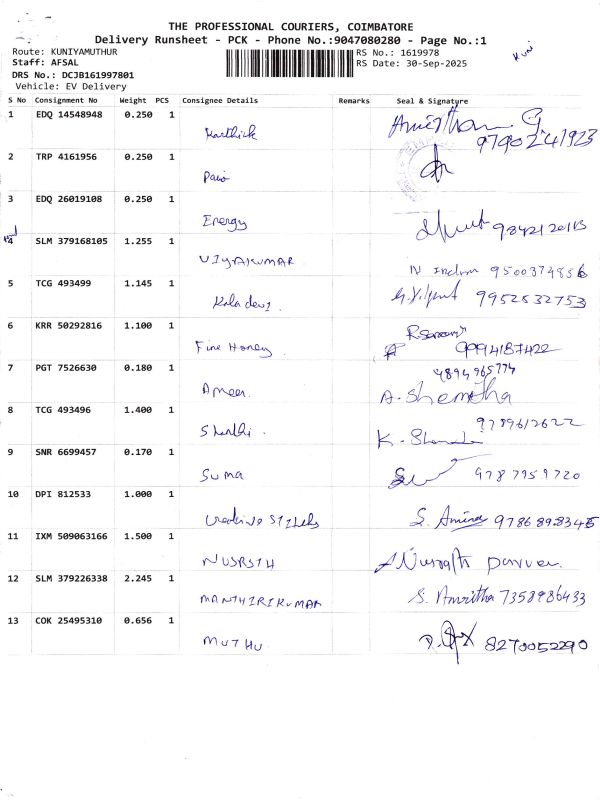 THE PROFESSIONAL COURIERS, COIMBATORE
Delivery Runsheet - PCK - Phone No.:9047080280 - Page No.:1
Route: KUNIYAMUTHUR
RS No.: 1619978
Staff: AFSAL
RS Date: 30-Sep-2025
DRS No.: DCJB161997801
Vehicle: EV Delivery
S No Consignment No Weight PCS Consignee Details Remarks Seal & Signature
1 EDQ 14548948 0.250 1
Karthick
9790241923
2 TRP 4161956 0.250 1
3 EDQ 26019108 0.250 1
Energy
4 SLM 379168105 1.255 1
VIJYAKUMAR
9500374856
5 TCG 493499 1.145 1
Kaladevi
9952832753
6 KRR 50292816 1.100 1
Fine Honey
9994187422
7 PGT 7526630 0.180 1
4894965774
Ameer
A. Shemitha
8 TCG 493496 1.400 1
9789612622
Shanthi
9 SNR 6699457 0.170 1
Suma
9787959720
10 DPI 812533 1.000 1
S. Amina 9786898345
11 IXM 509063166 1.500 1
NUSRSTH
12 SLM 379226338 2.245 1
MANTHIRIKUMAR
S. Amritha 7358986433
13 COK 25495310 0.656 1
MUTHU
8270052290